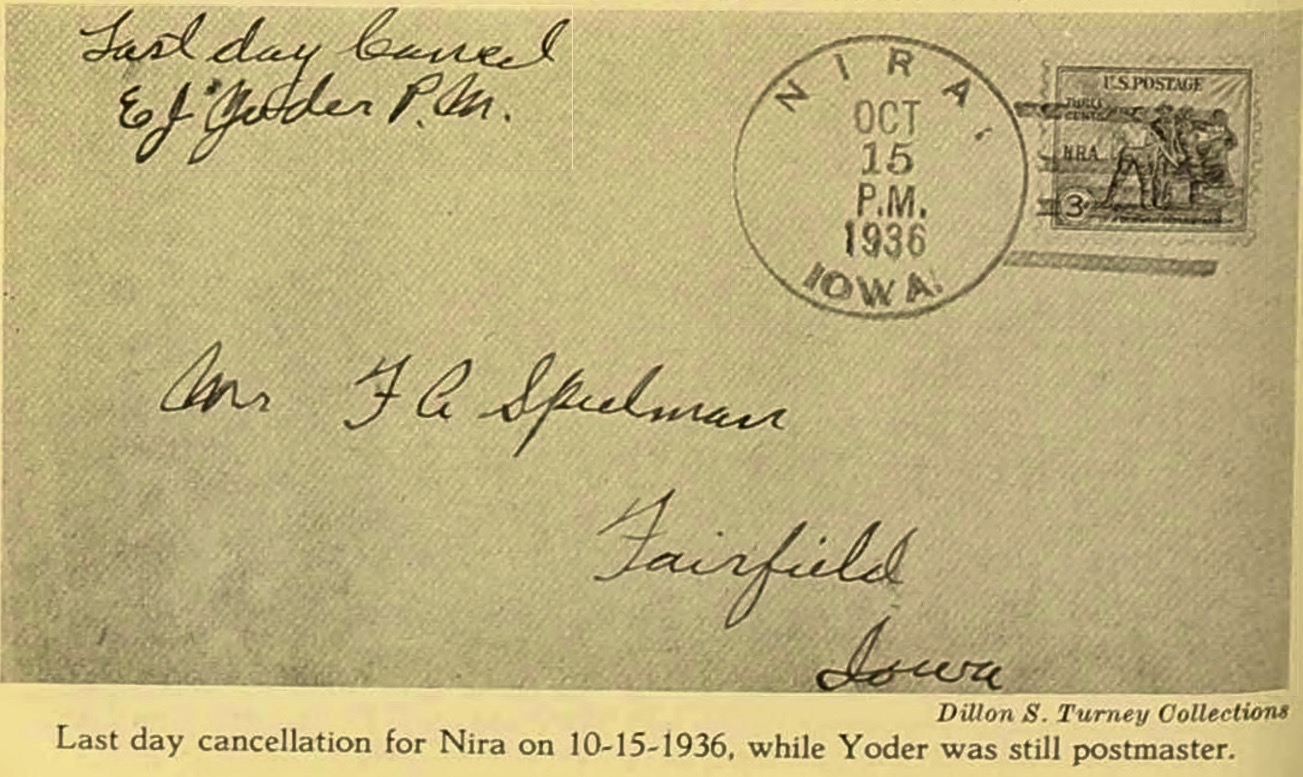 Last day Cancel
E J Yoder P.M.
NIRA,
OCT
15
P.M.
1936
IOWA.
U.S. POSTAGE
THREE
CENTS
NRA
3¢
Mr F A Spielman
Fairfield
Iowa
Dillon S. Turney Collections
Last day cancellation for Nira on 10-15-1936, while Yoder was still postmaster.